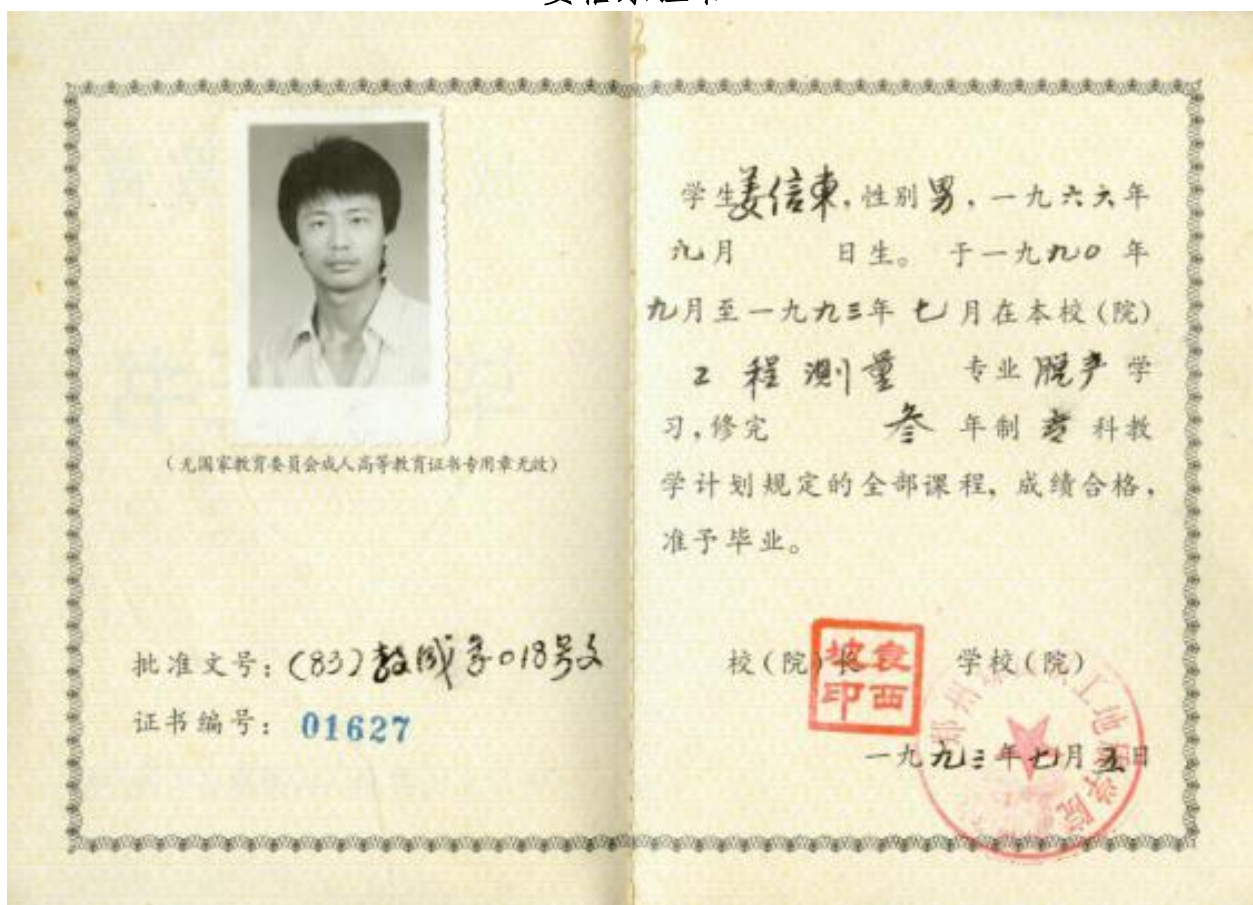 (无国家教育委员会成人高等教育证书专用章无效)
批准文号：(83)教成字018号文
证书编号：01627
学生姜信東，性别男，一九六六年
九月 日生。于一九九〇年
九月至一九九三年七月在本校(院)
工程测量 专业脱产学
习，修完 叁年制专科教
学计划规定的全部课程，成绩合格，
准予毕业。
校(院)长 学校(院)
一九九三年七月五日